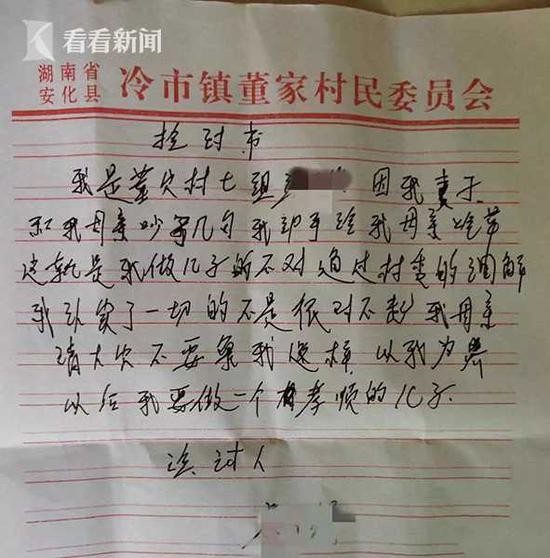 看看新闻
湖南省
安化县
冷市镇董家村民委员会
检讨书
我是董家村七组 因我妻子
和我母亲吵了几句 我动手给我母亲
这就是我做儿子的不对 通过村委的调解
我认识了一切的不是 很对不起我母亲
请大家不要象我这样 以我为界
以后我要做一个有孝顺的儿子.
检讨人